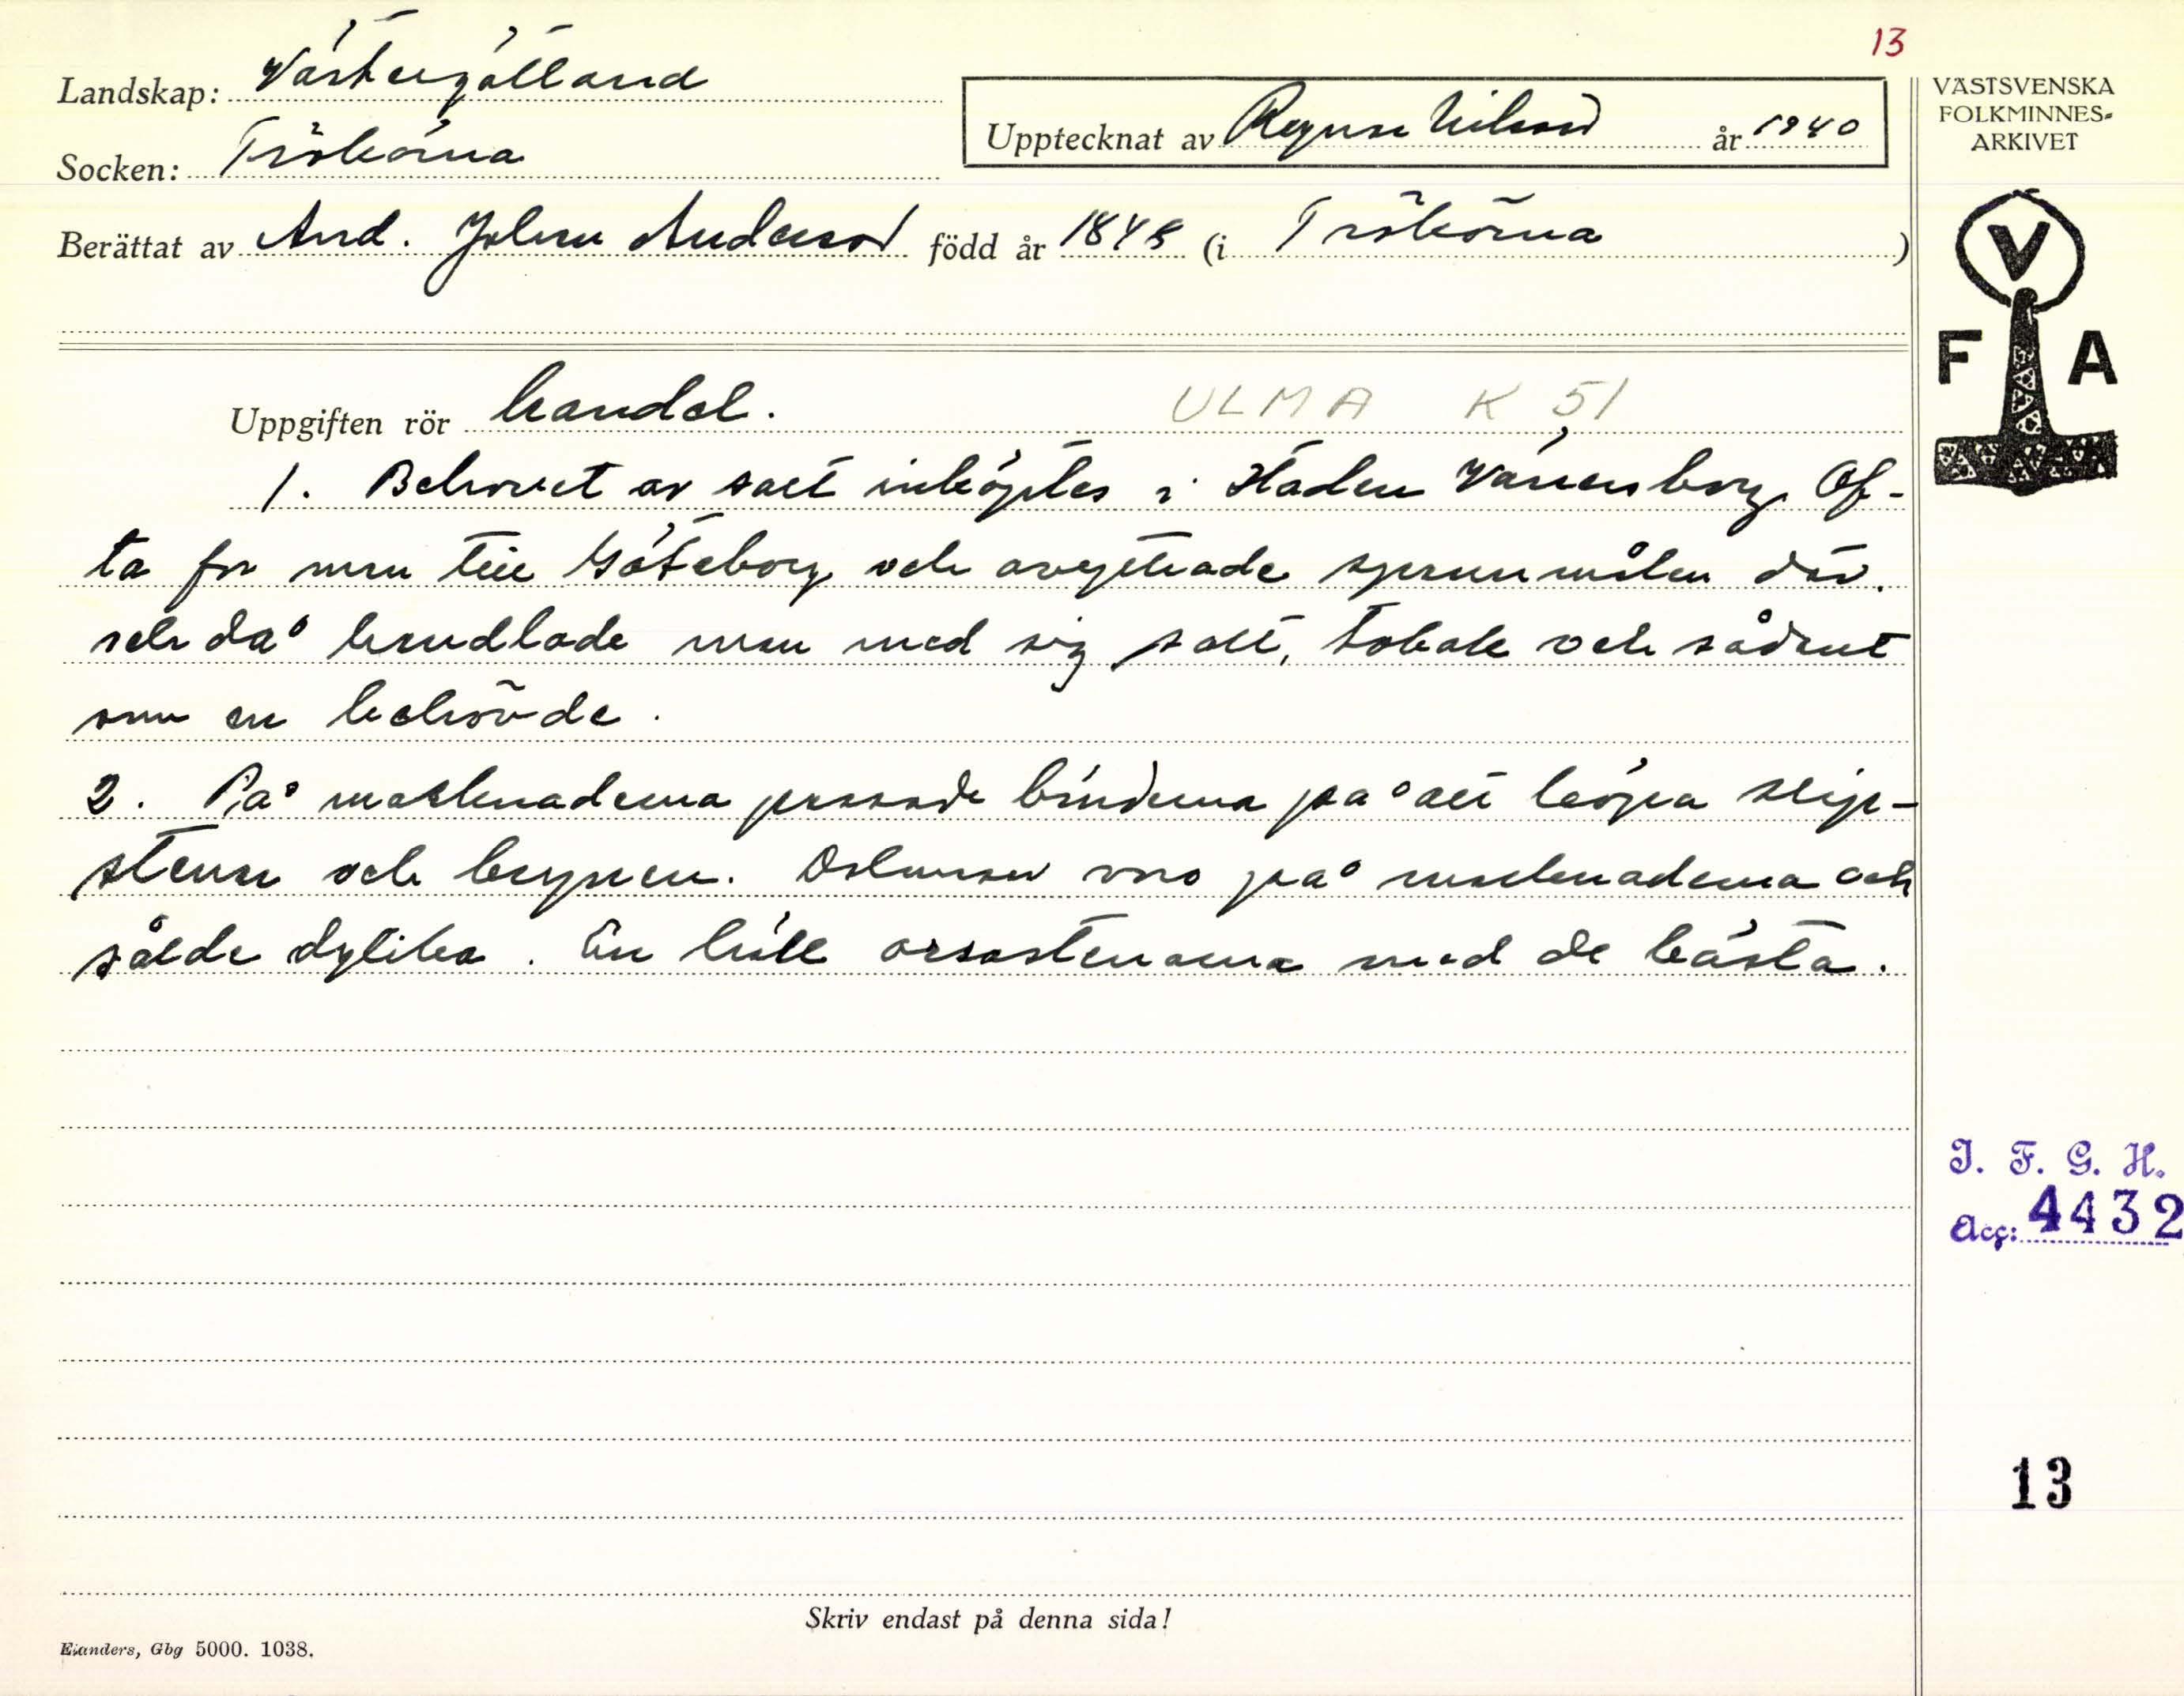 13
Landskap: Västergötland
Socken: Trökörna
Upptecknat av Ragnar Nilsson år 1940
Berättat av And. Johan Andersson född år 1848 (i Trökörna)
VÄSTSVENSKA
FOLKMINNES-
ARKIVET
V
F A
Uppgiften rör handel.
ULMA K 51
1. Behovet av salt inköptes i staden Vänersborg. Of-
ta for man till Göteborg och avyttrade spannmålen där.
och då handlade man med sig salt, tobak och sådant
som en behövde.
2. På marknaderna passade bönderna på att köpa slip-
stenar och brynen. Dalmasar voro på marknaderna och
sålde dylika. En höll orsastenarna med de bästa.
I. F. G. H.
Acc: 4432
13
Skriv endast på denna sida!
Elanders, Gbg 5000. 1038.